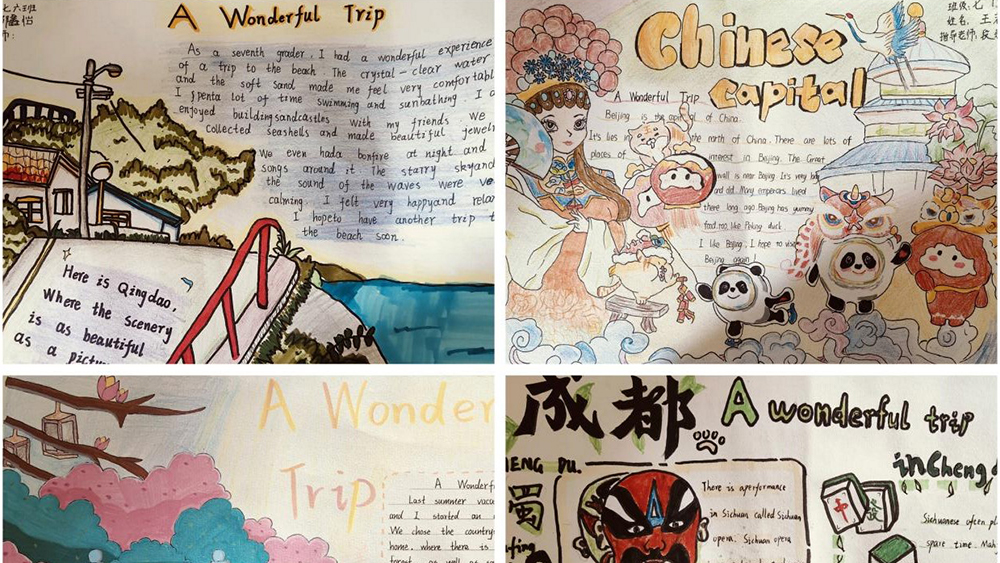 七六班
A Wonderful Trip
As a seventh grader, I had a wonderful experience
of a trip to the beach. The crystal-clear water
and the soft sand made me feel very comfortabl
I spenta lot of time swimming and sunbathing. I
enjoyed buildingsandcastles with my friends We
collected seashells and made beautiful jewelr
We even hada bonfire at night and
songs around it The starry skyand
the sound of the waves were ve
calming. I felt very happyand relax
I hopeto have another trip t
the beach soon.
Here is Qingdao,
Where the scenery
is as beautiful
as a pictu
Chinese
capital
班级: 七
姓名: 王
指导老师:
A Wonderful Trip
Beijing is the capital of China.
It's lies in the north of China. There are lots of
places of interest in Beijing. The Great
wall is near Beijing It's very big
and old. Many emperors lived
there long ago Beijing has yummy
food, too, like Peking duck
I like Beijing, I hope to visit
Beijing again
A Wonder
Trip
A Wonderf
Last summer vaca
and I started an
We chose the country
home, where there is
forest as well as
成都 A wonderful trip
inCheng
HENG DU.
蜀
There is aperformance
in Sichuan called Sichuan
opera. Sichuan opera
中 發
Sichuanese often pl
spare time. Mah